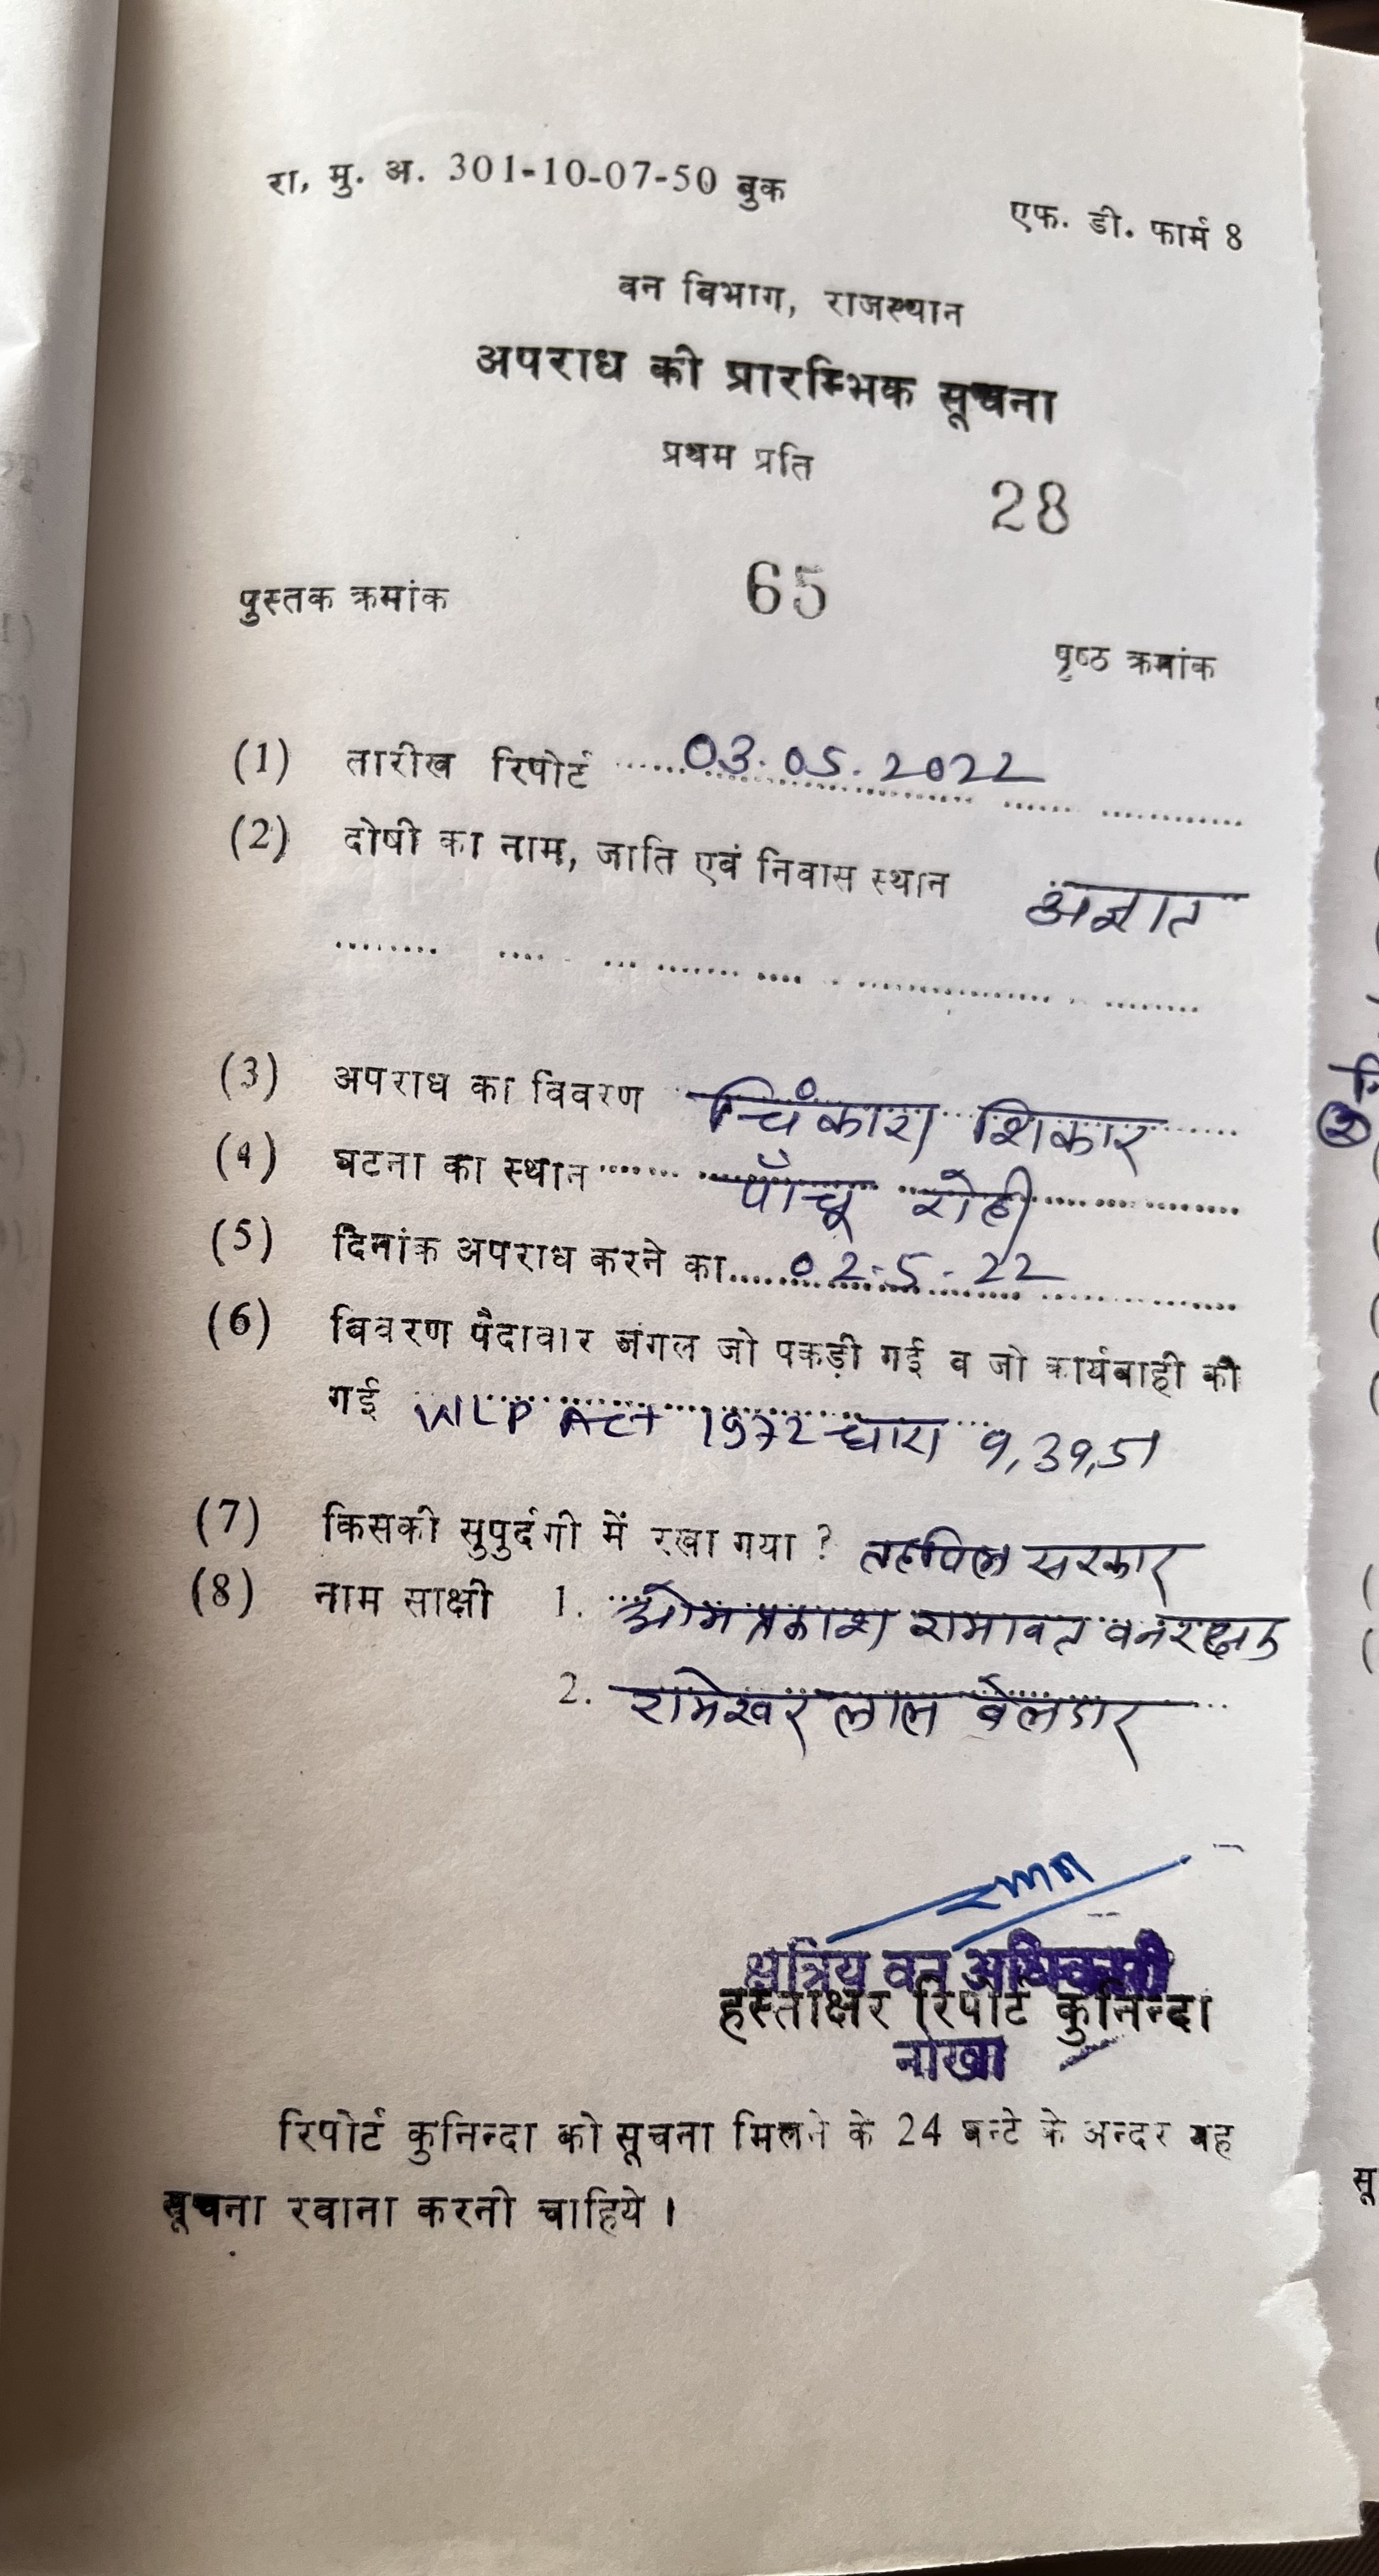 रा, मु. अ. 301-10-07-50 बुक
एफ. डी. फार्म 8
वन विभाग, राजस्थान
अपराध की प्रारम्भिक सूचना
प्रथम प्रति
28
65
पुस्तक क्रमांक
पृष्ठ क्रमांक
(1) तारीख रिपोर्ट 03.05.2022
(2) दोषी का नाम, जाति एवं निवास स्थान अज्ञात
(3) अपराध का विवरण चिंकारा शिकार
(4) घटना का स्थान पाँचू रोही
(5) दिनांक अपराध करने का 02-5-22
(6) विवरण पैदावार जंगल जो पकड़ी गई व जो कार्यवाही की
गई WLP Act 1972 धारा 9,39,51
(7) किसकी सुपुर्दगी में रखा गया ? तहविल सरकार
(8) नाम साक्षी 1. ओमप्रकाश रामावत वनरक्षक
2. रामेश्वर लाल बेलदार
क्षेत्रिय वन अधिकारी
हस्ताक्षर रिपोर्ट कुनिन्दा
नोखा
रिपोर्ट कुनिन्दा को सूचना मिलने के 24 घन्टे के अन्दर यह
सूचना रवाना करनी चाहिये ।
सू